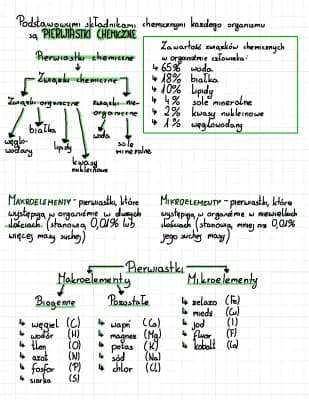 Podstawowymi składnikami chemicznymi każdego organizmu
są PIERWIASTKI CHEMICZNE
Pierwiastki chemiczne
Związki chemiczne
Związki organiczne
związki nie-
organiczne
węglo-
wodany
białka
lipidy
kwasy
nukleinowe
woda
sole
mineralne
Zawartość związków chemicznych
w organizmie człowieka:
↳ 65% woda
↳ 18% białka
↳ 10% lipidy
↳ 4% sole mineralne
↳ 2% kwasy nukleinowe
↳ 1% węglowodany
MAKROELEMENTY - pierwiastki, które
występują w organizmie w dużych
ilościach (stanowią 0,01% lub
więcej masy suchej)
MIKROELEMENTY - pierwiastki, które
występują w organizmie w niewielkich
ilościach (stanowią mniej niż 0,01%
jego suchej masy)
Pierwiastki
Makroelementy
Mikroelementy
Biogenne
↳ węgiel (C)
↳ wodór (H)
↳ tlen (O)
↳ azot (N)
↳ fosfor (P)
↳ siarka (S)
Pozostałe
↳ wapń (Ca)
↳ magnez (Mg)
↳ potas (K)
↳ sód (Na)
↳ chlor (Cl)
↳ żelazo (Fe)
↳ miedź (Cu)
↳ jod (I)
↳ fluor (F)
↳ kobalt (Co)